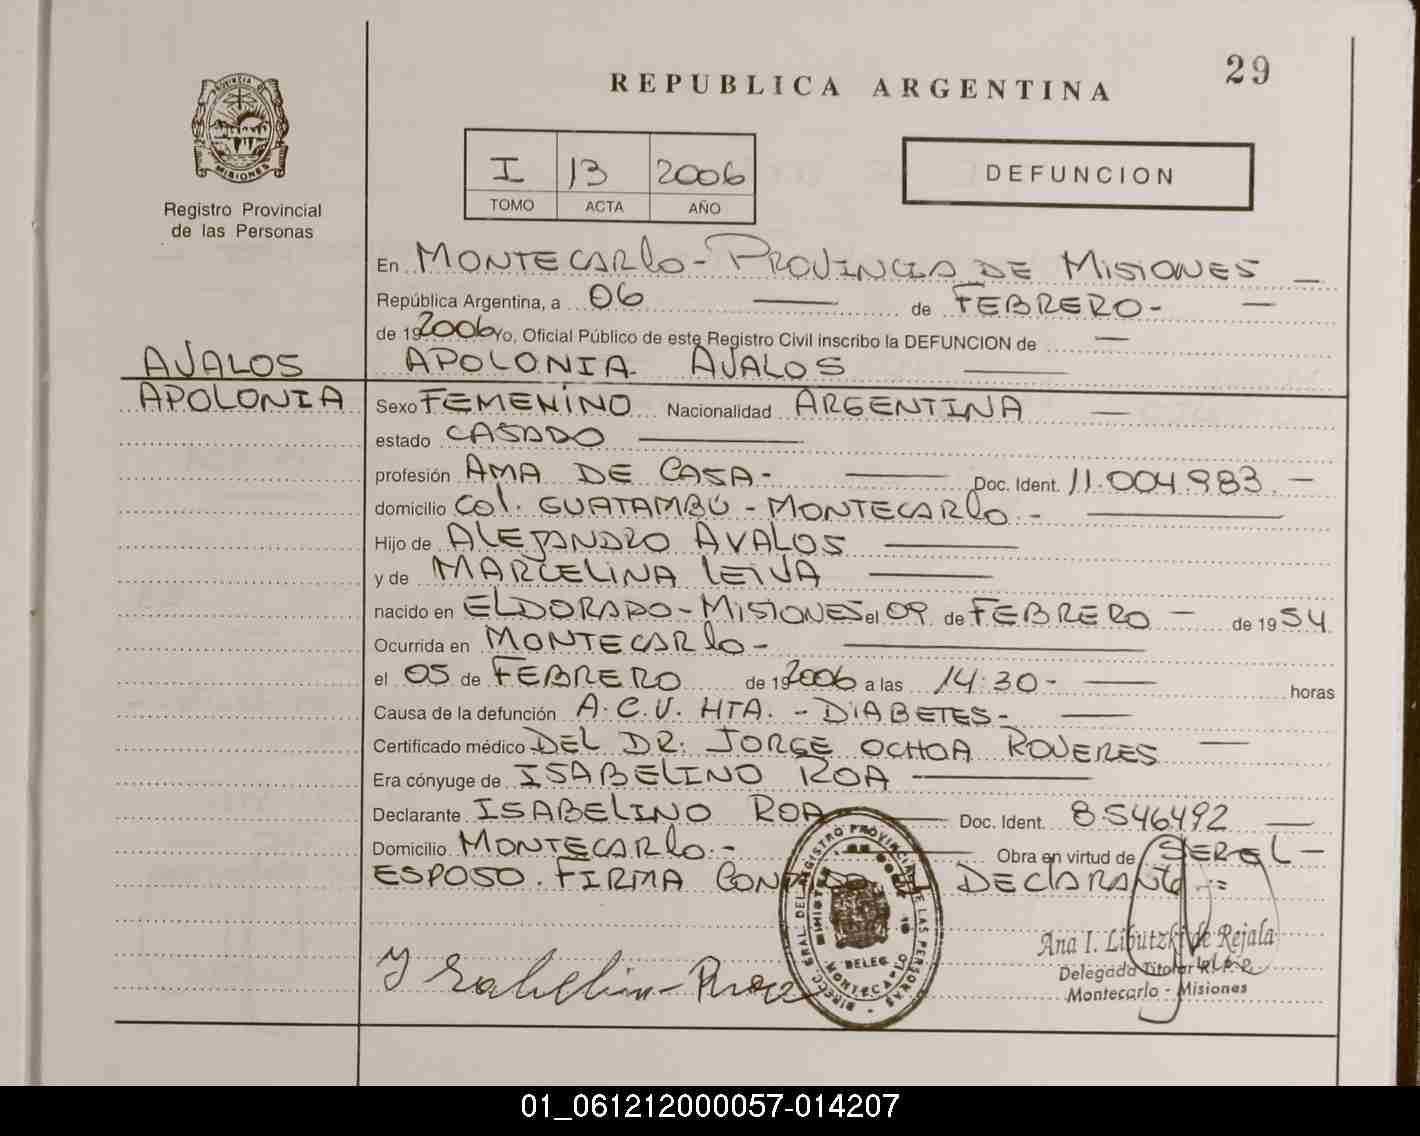 29
REPUBLICA ARGENTINA
PROVINCIA DE
MISIONES
Registro Provincial
de las Personas
I 13 2006
TOMO ACTA AÑO
DEFUNCION
En MONTECARLO - PROVINCIA DE MISIONES —
República Argentina, a 06 — de FEBRERO - —
de 19 2006 Yo, Oficial Público de este Registro Civil inscribo la DEFUNCION de —
AVALOS
APOLONIA
APOLONIA AVALOS —
Sexo FEMENINO Nacionalidad ARGENTINA —
estado CASADO —
profesión AMA DE CASA - — Doc. Ident. 11.004.983 —
domicilio COL. GUATAMBÚ - MONTECARLO - —
Hijo de ALEJANDRO AVALOS —
y de MARCELINA LEIVA —
nacido en ELDORADO - MISIONES el 09 de FEBRERO — de 19 54
Ocurrida en MONTECARLO - —
el 05 de FEBRERO de 19 2006 a las 14:30 - — horas
Causa de la defunción A.C.V. HTA. - DIABETES - —
Certificado médico DEL DR. JORGE OCHOA ROVERES —
Era cónyuge de ISABELINO ROA —
Declarante ISABELINO ROA — Doc. Ident. 8.546.492 —
Domicilio MONTECARLO - — Obra en virtud de SER EL -
ESPOSO. FIRMA DECLARANTE
DIRECC. GRAL. DEL REGISTRO PROVINCIAL DE LAS PERSONAS
DELEG.
MONTECARLO
Ysabelino Roa
Ana I. Libutzki de Rejala
Delegada Titular R.P.P.
Montecarlo - Misiones
01_061212000057-014207